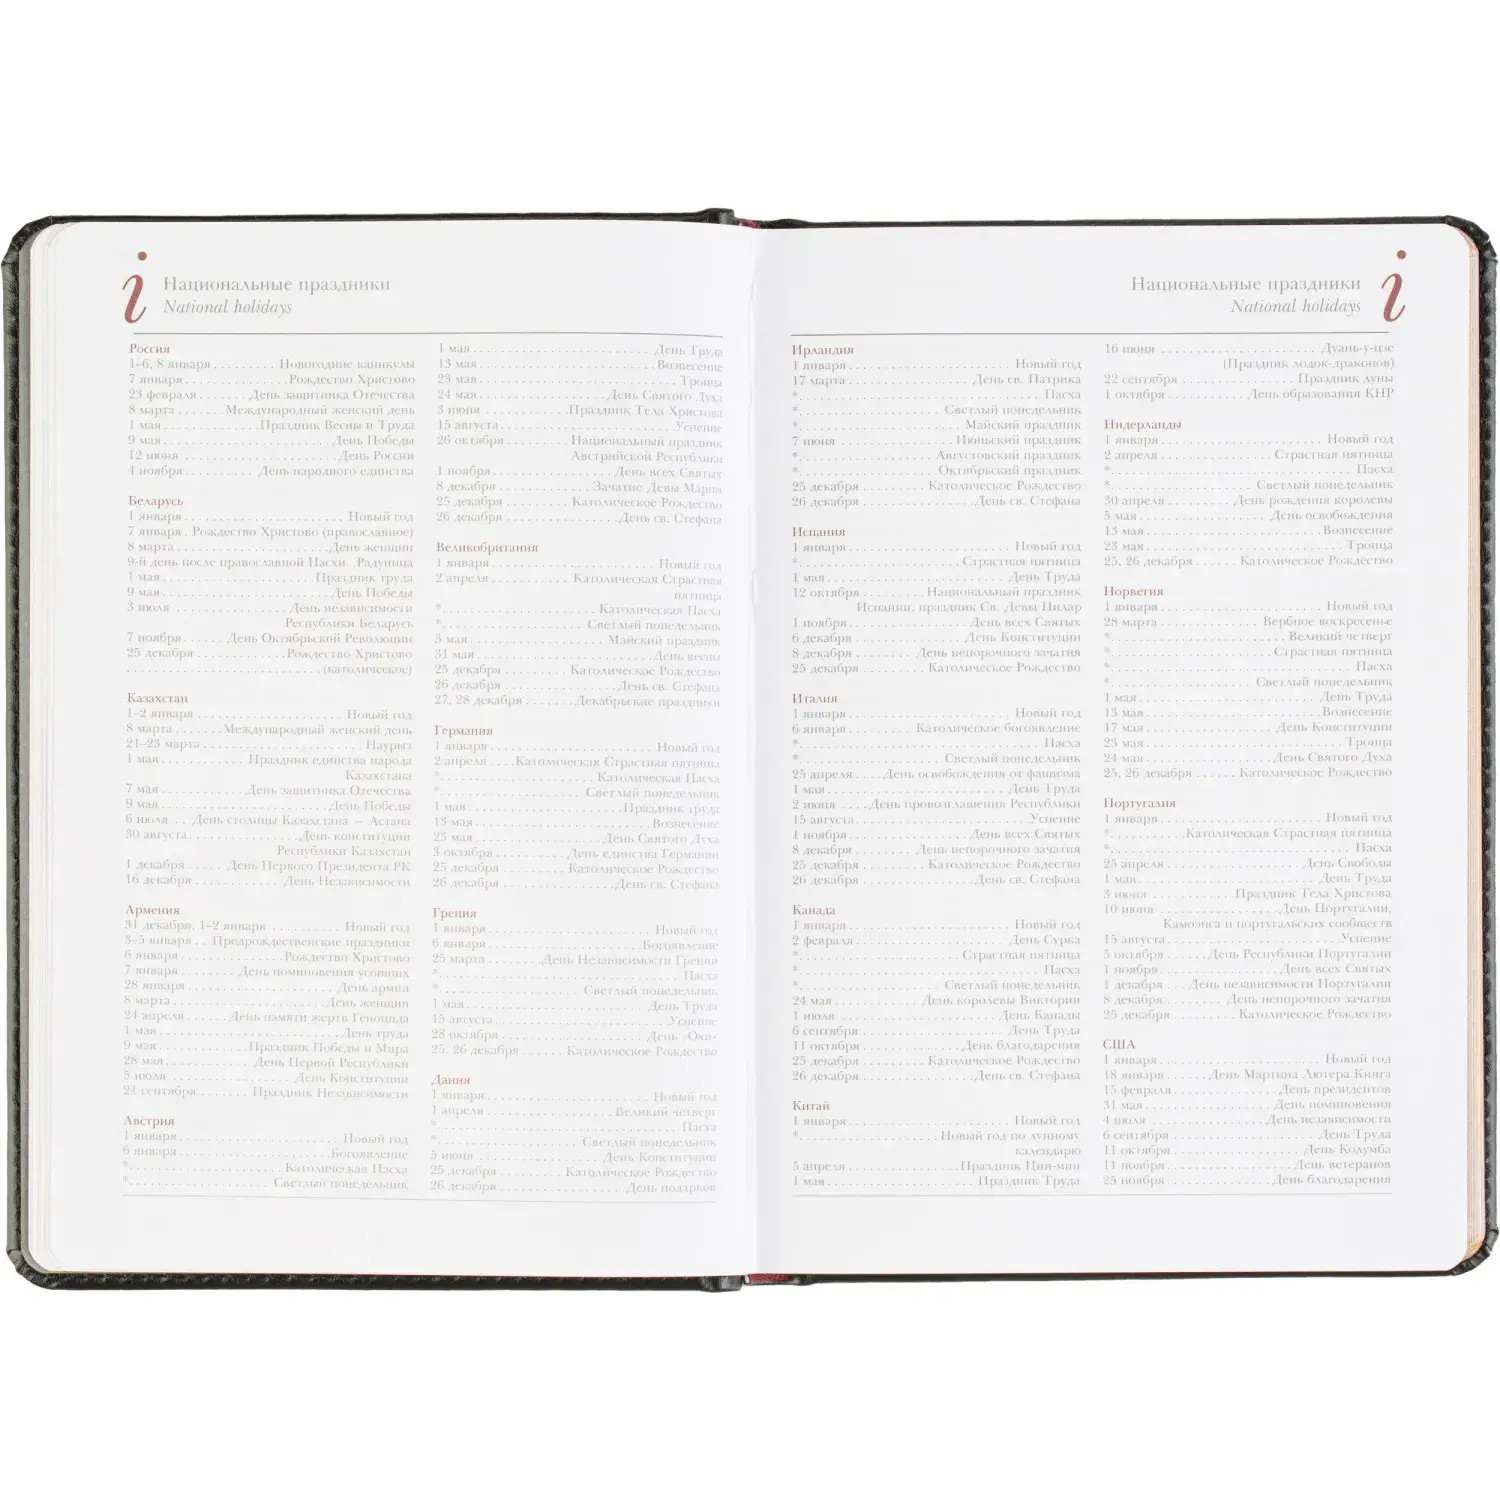 i
Национальные праздники
National holidays
Россия
1–6, 8 января . . . . . . . . . Новогодние каникулы
7 января . . . . . . . . . . . . . . Рождество Христово
23 февраля . . . . . . День защитника Отечества
8 марта . . . . . . . Международный женский день
1 мая . . . . . . . . . . . . . Праздник Весны и Труда
9 мая . . . . . . . . . . . . . . . . . . . . . . День Победы
12 июня . . . . . . . . . . . . . . . . . . . . . День России
4 ноября . . . . . . . . . . День народного единства
Беларусь
1 января . . . . . . . . . . . . . . . . . . . . . . Новый год
7 января . Рождество Христово (православное)
8 марта . . . . . . . . . . . . . . . . . . . . День женщин
9-й день после православной Пасхи . Радуница
1 мая . . . . . . . . . . . . . . . . . . . . Праздник труда
9 мая . . . . . . . . . . . . . . . . . . . . . . День Победы
3 июля . . . . . . . . . . . . . . . . День независимости
Республики Беларусь
7 ноября . . . . . . День Октябрьской Революции
25 декабря . . . . . . . . . . . . Рождество Христово
. . . . . . . . . . . . . . . . . . . . . . . . . (католическое)
Казахстан
1–2 января . . . . . . . . . . . . . . . . . . . . Новый год
8 марта . . . . . . . Международный женский день
21–23 марта . . . . . . . . . . . . . . . . . . . . . . Наурыз
1 мая . . . . . . . . . . . . Праздник единства народа
Казахстана
7 мая . . . . . . . . . . . . День защитника Отечества
9 мая . . . . . . . . . . . . . . . . . . . . . . День Победы
6 июля . . . День столицы Казахстана — Астана
30 августа . . . . . . . . . . . . . . . . День конституции
Республики Казахстан
1 декабря . . . . . День Первого Президента РК
16 декабря . . . . . . . . . . . . . День Независимости
Армения
31 декабря, 1–2 января . . . . . . . . . . Новый год
3–5 января . . Предрождественские праздники
6 января . . . . . . . . . . . . . . . Рождество Христово
7 января . . . . . . . . День поминовения усопших
28 января . . . . . . . . . . . . . . . . . . . . . День армии
8 марта . . . . . . . . . . . . . . . . . . . . День женщин
24 апреля . . . . . . День памяти жертв Геноцида
1 мая . . . . . . . . . . . . . . . . . . . . . . . . День труда
9 мая . . . . . . . . . . . . . Праздник Победы и Мира
28 мая . . . . . . . . . . . . . День Первой Республики
5 июля . . . . . . . . . . . . . . . . . . День Конституции
21 сентября . . . . . . . . Праздник Независимости
Австрия
1 января . . . . . . . . . . . . . . . . . . . . . . Новый год
6 января . . . . . . . . . . . . . . . . . . . . Богоявление
* . . . . . . . . . . . . . . . . . . . . . Католическая Пасха
* . . . . . . . . . . . . . . . . . . . Светлый понедельник
1 мая . . . . . . . . . . . . . . . . . . . . . . . . День Труда
13 мая . . . . . . . . . . . . . . . . . . . . . . . Вознесение
23 мая . . . . . . . . . . . . . . . . . . . . . . . . . . Троица
24 мая . . . . . . . . . . . . . . . . . . День Святого Духа
3 июня . . . . . . . . . . . . Праздник Тела Христова
15 августа . . . . . . . . . . . . . . . . . . . . . . . Успение
26 октября . . . . . . . . . Национальный праздник
Австрийской Республики
1 ноября . . . . . . . . . . . . . . . . . День всех Святых
8 декабря . . . . . . . . . . . . . Зачатие Девы Марии
25 декабря . . . . . . . . . . Католическое Рождество
26 декабря . . . . . . . . . . . . . . . . День св. Стефана
Великобритания
1 января . . . . . . . . . . . . . . . . . . . . . . Новый год
2 апреля . . . . . . . . . . . . Католическая Страстная
пятница
* . . . . . . . . . . . . . . . . . . . . . Католическая Пасха
* . . . . . . . . . . . . . . . . . . . Светлый понедельник
3 мая . . . . . . . . . . . . . . . . . . . Майский праздник
31 мая . . . . . . . . . . . . . . . . . . . . . . . День весны
25 декабря . . . . . . . . . . Католическое Рождество
26 декабря . . . . . . . . . . . . . . . . День св. Стефана
27, 28 декабря . . . . . . . Декабрьские праздники
Германия
1 января . . . . . . . . . . . . . . . . . . . . . . Новый год
2 апреля . . . . Католическая Страстная пятница
* . . . . . . . . . . . . . . . . . . . . . Католическая Пасха
* . . . . . . . . . . . . . . . . . . . Светлый понедельник
1 мая . . . . . . . . . . . . . . . . . . . . Праздник труда
13 мая . . . . . . . . . . . . . . . . . . . . . . . Вознесение
23 мая . . . . . . . . . . . . . . . . . . День Святого Духа
3 октября . . . . . . . . . . . День единства Германии
25 декабря . . . . . . . . . . Католическое Рождество
26 декабря . . . . . . . . . . . . . . . . День св. Стефана
Греция
1 января . . . . . . . . . . . . . . . . . . . . . . Новый год
6 января . . . . . . . . . . . . . . . . . . . . Богоявление
25 марта . . . . . . . . День Независимости Греции
* . . . . . . . . . . . . . . . . . . . . . . . . . . . . . . . . Пасха
* . . . . . . . . . . . . . . . . . . . Светлый понедельник
1 мая . . . . . . . . . . . . . . . . . . . . . . . . День Труда
15 августа . . . . . . . . . . . . . . . . . . . . . . . Успение
28 октября . . . . . . . . . . . . . . . . . . . . День «Охи»
25, 26 декабря . . . . . . Католическое Рождество
Дания
1 января . . . . . . . . . . . . . . . . . . . . . . Новый год
1 апреля . . . . . . . . . . . . . . . . . Великий четверг
* . . . . . . . . . . . . . . . . . . . . . . . . . . . . . . . . Пасха
* . . . . . . . . . . . . . . . . . . . Светлый понедельник
5 июня . . . . . . . . . . . . . . . . . . День Конституции
25 декабря . . . . . . . . . . Католическое Рождество
26 декабря . . . . . . . . . . . . . . . . . День подарков
Национальные праздники
National holidays
i
Ирландия
1 января . . . . . . . . . . . . . . . . . . . . . . Новый год
17 марта . . . . . . . . . . . . . . . . . День св. Патрика
* . . . . . . . . . . . . . . . . . . . . . . . . . . . . . . . . Пасха
* . . . . . . . . . . . . . . . . . . . Светлый понедельник
* . . . . . . . . . . . . . . . . . . . . . . Майский праздник
7 июня . . . . . . . . . . . . . . . . . Июньский праздник
* . . . . . . . . . . . . . . . . . . . Августовский праздник
* . . . . . . . . . . . . . . . . . . . Октябрьский праздник
25 декабря . . . . . . . . . . Католическое Рождество
26 декабря . . . . . . . . . . . . . . . . День св. Стефана
Испания
1 января . . . . . . . . . . . . . . . . . . . . . . Новый год
* . . . . . . . . . . . . . . . . . . . . . . Страстная пятница
1 мая . . . . . . . . . . . . . . . . . . . . . . . . День Труда
12 октября . . . . . . . . . . . . Национальный праздник
Испании, праздник Св. Девы Пилар
1 ноября . . . . . . . . . . . . . . . . . День всех Святых
6 декабря . . . . . . . . . . . . . . . . День Конституции
8 декабря . . . . . . . . . День непорочного зачатия
25 декабря . . . . . . . . . . Католическое Рождество
Италия
1 января . . . . . . . . . . . . . . . . . . . . . . Новый год
6 января . . . . . . . . . . Католическое богоявление
* . . . . . . . . . . . . . . . . . . . . . . . . . . . . . . . . Пасха
* . . . . . . . . . . . . . . . . . . . Светлый понедельник
25 апреля . . . . День освобождения от фашизма
1 мая . . . . . . . . . . . . . . . . . . . . . . . . День Труда
2 июня . . . . День провозглашения Республики
15 августа . . . . . . . . . . . . . . . . . . . . . . . Успение
1 ноября . . . . . . . . . . . . . . . . . День всех Святых
8 декабря . . . . . . . . . День непорочного зачатия
25 декабря . . . . . . . . . . Католическое Рождество
26 декабря . . . . . . . . . . . . . . . . День св. Стефана
Канада
1 января . . . . . . . . . . . . . . . . . . . . . . Новый год
2 февраля . . . . . . . . . . . . . . . . . . . . . День Сурка
* . . . . . . . . . . . . . . . . . . . . . . Страстная пятница
* . . . . . . . . . . . . . . . . . . . . . . . . . . . . . . . . Пасха
* . . . . . . . . . . . . . . . . . . . Светлый понедельник
24 мая . . . . . . . . . . . . День королевы Виктории
1 июля . . . . . . . . . . . . . . . . . . . . . . День Канады
6 сентября . . . . . . . . . . . . . . . . . . . . День Труда
11 октября . . . . . . . . . . . . . . День благодарения
25 декабря . . . . . . . . . . Католическое Рождество
26 декабря . . . . . . . . . . . . . . . . День св. Стефана
Китай
1 января . . . . . . . . . . . . . . . . . . . . . . Новый год
* . . . . . . . . . . . . . . . . . . . Новый год по лунному
календарю
5 апреля . . . . . . . . . . . . . . . . Праздник Цин-мин
1 мая . . . . . . . . . . . . . . . . . . . . Праздник Труда
16 июня . . . . . . . . . . . . . . . . . . . . . . Дуань-у-цзе
(Праздник лодок-драконов)
22 сентября . . . . . . . . . . . . . . . Праздник луны
1 октября . . . . . . . . . . . День образования КНР
Нидерланды
1 января . . . . . . . . . . . . . . . . . . . . . . Новый год
2 апреля . . . . . . . . . . . . . . . . Страстная пятница
* . . . . . . . . . . . . . . . . . . . . . . . . . . . . . . . . Пасха
* . . . . . . . . . . . . . . . . . . . Светлый понедельник
30 апреля . . . . . . . . . День рождения королевы
5 мая . . . . . . . . . . . . . . . . . . День освобождения
13 мая . . . . . . . . . . . . . . . . . . . . . . . Вознесение
23 мая . . . . . . . . . . . . . . . . . . . . . . . . . . Троица
25, 26 декабря . . . . . . Католическое Рождество
Норвегия
1 января . . . . . . . . . . . . . . . . . . . . . . Новый год
28 марта . . . . . . . . . . . . . . Вербное воскресенье
* . . . . . . . . . . . . . . . . . . . . . . . . Великий четверг
* . . . . . . . . . . . . . . . . . . . . . . Страстная пятница
* . . . . . . . . . . . . . . . . . . . . . . . . . . . . . . . . Пасха
* . . . . . . . . . . . . . . . . . . . Светлый понедельник
1 мая . . . . . . . . . . . . . . . . . . . . . . . . День Труда
13 мая . . . . . . . . . . . . . . . . . . . . . . . Вознесение
17 мая . . . . . . . . . . . . . . . . . . День Конституции
23 мая . . . . . . . . . . . . . . . . . . . . . . . . . . Троица
24 мая . . . . . . . . . . . . . . . . . . День Святого Духа
25, 26 декабря . . . . . . Католическое Рождество
Португалия
1 января . . . . . . . . . . . . . . . . . . . . . . Новый год
* . . . . . . . . . . . Католическая Страстная пятница
* . . . . . . . . . . . . . . . . . . . . . . . . . . . . . . . . Пасха
25 апреля . . . . . . . . . . . . . . . . . . . День Свободы
1 мая . . . . . . . . . . . . . . . . . . . . . . . . День Труда
3 июня . . . . . . . . . . . . Праздник Тела Христова
10 июня . . . . . . . . . . . . . . . . . День Португалии,
Камоэнса и португальских сообществ
15 августа . . . . . . . . . . . . . . . . . . . . . . . Успение
5 октября . . . . . . . . День Республики Португалии
1 ноября . . . . . . . . . . . . . . . . . День всех Святых
1 декабря . . . . День независимости Португалии
8 декабря . . . . . . . . . День непорочного зачатия
25 декабря . . . . . . . . . . Католическое Рождество
США
1 января . . . . . . . . . . . . . . . . . . . . . . Новый год
18 января . . . . . . День Мартина Лютера Кинга
15 февраля . . . . . . . . . . . . . . . День президентов
31 мая . . . . . . . . . . . . . . . . . . День поминовения
4 июля . . . . . . . . . . . . . . . . День независимости
6 сентября . . . . . . . . . . . . . . . . . . . . День Труда
11 октября . . . . . . . . . . . . . . . . . . День Колумба
11 ноября . . . . . . . . . . . . . . . . . . День ветеранов
25 ноября . . . . . . . . . . . . . . . День благодарения